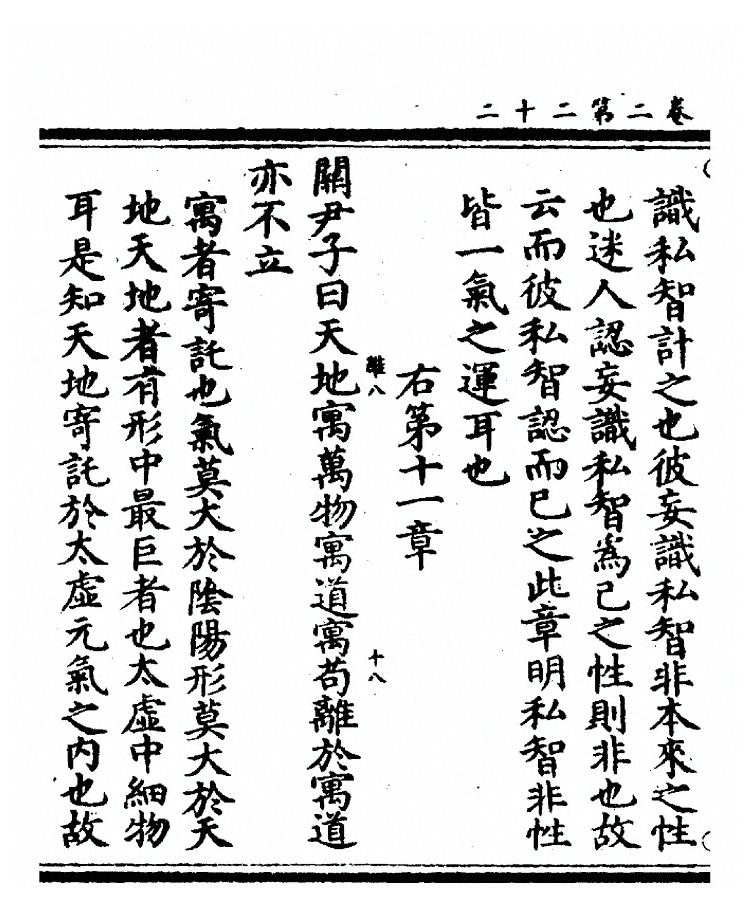 卷二第二十二
識私智計之也彼妄識私智非本來之性
也迷人認妄識私智為己之性則非也故
云而彼私智認而已之此章明私智非性
皆一氣之運耳也
右第十一章
離八
十八
關尹子曰天地寓萬物寓道寓苟離於寓道
亦不立
寓者寄託也氣莫大於陰陽形莫大於天
地天地者有形中最巨者也太虛中細物
耳是知天地寄託於太虛元氣之内也故